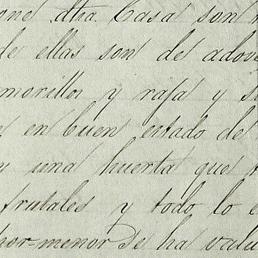 one dha Casa son
de ellas son de adove
morillos y rafa y s
en buen estado de
y una huerta que
frutales y todo lo e
por=menor se ha valu